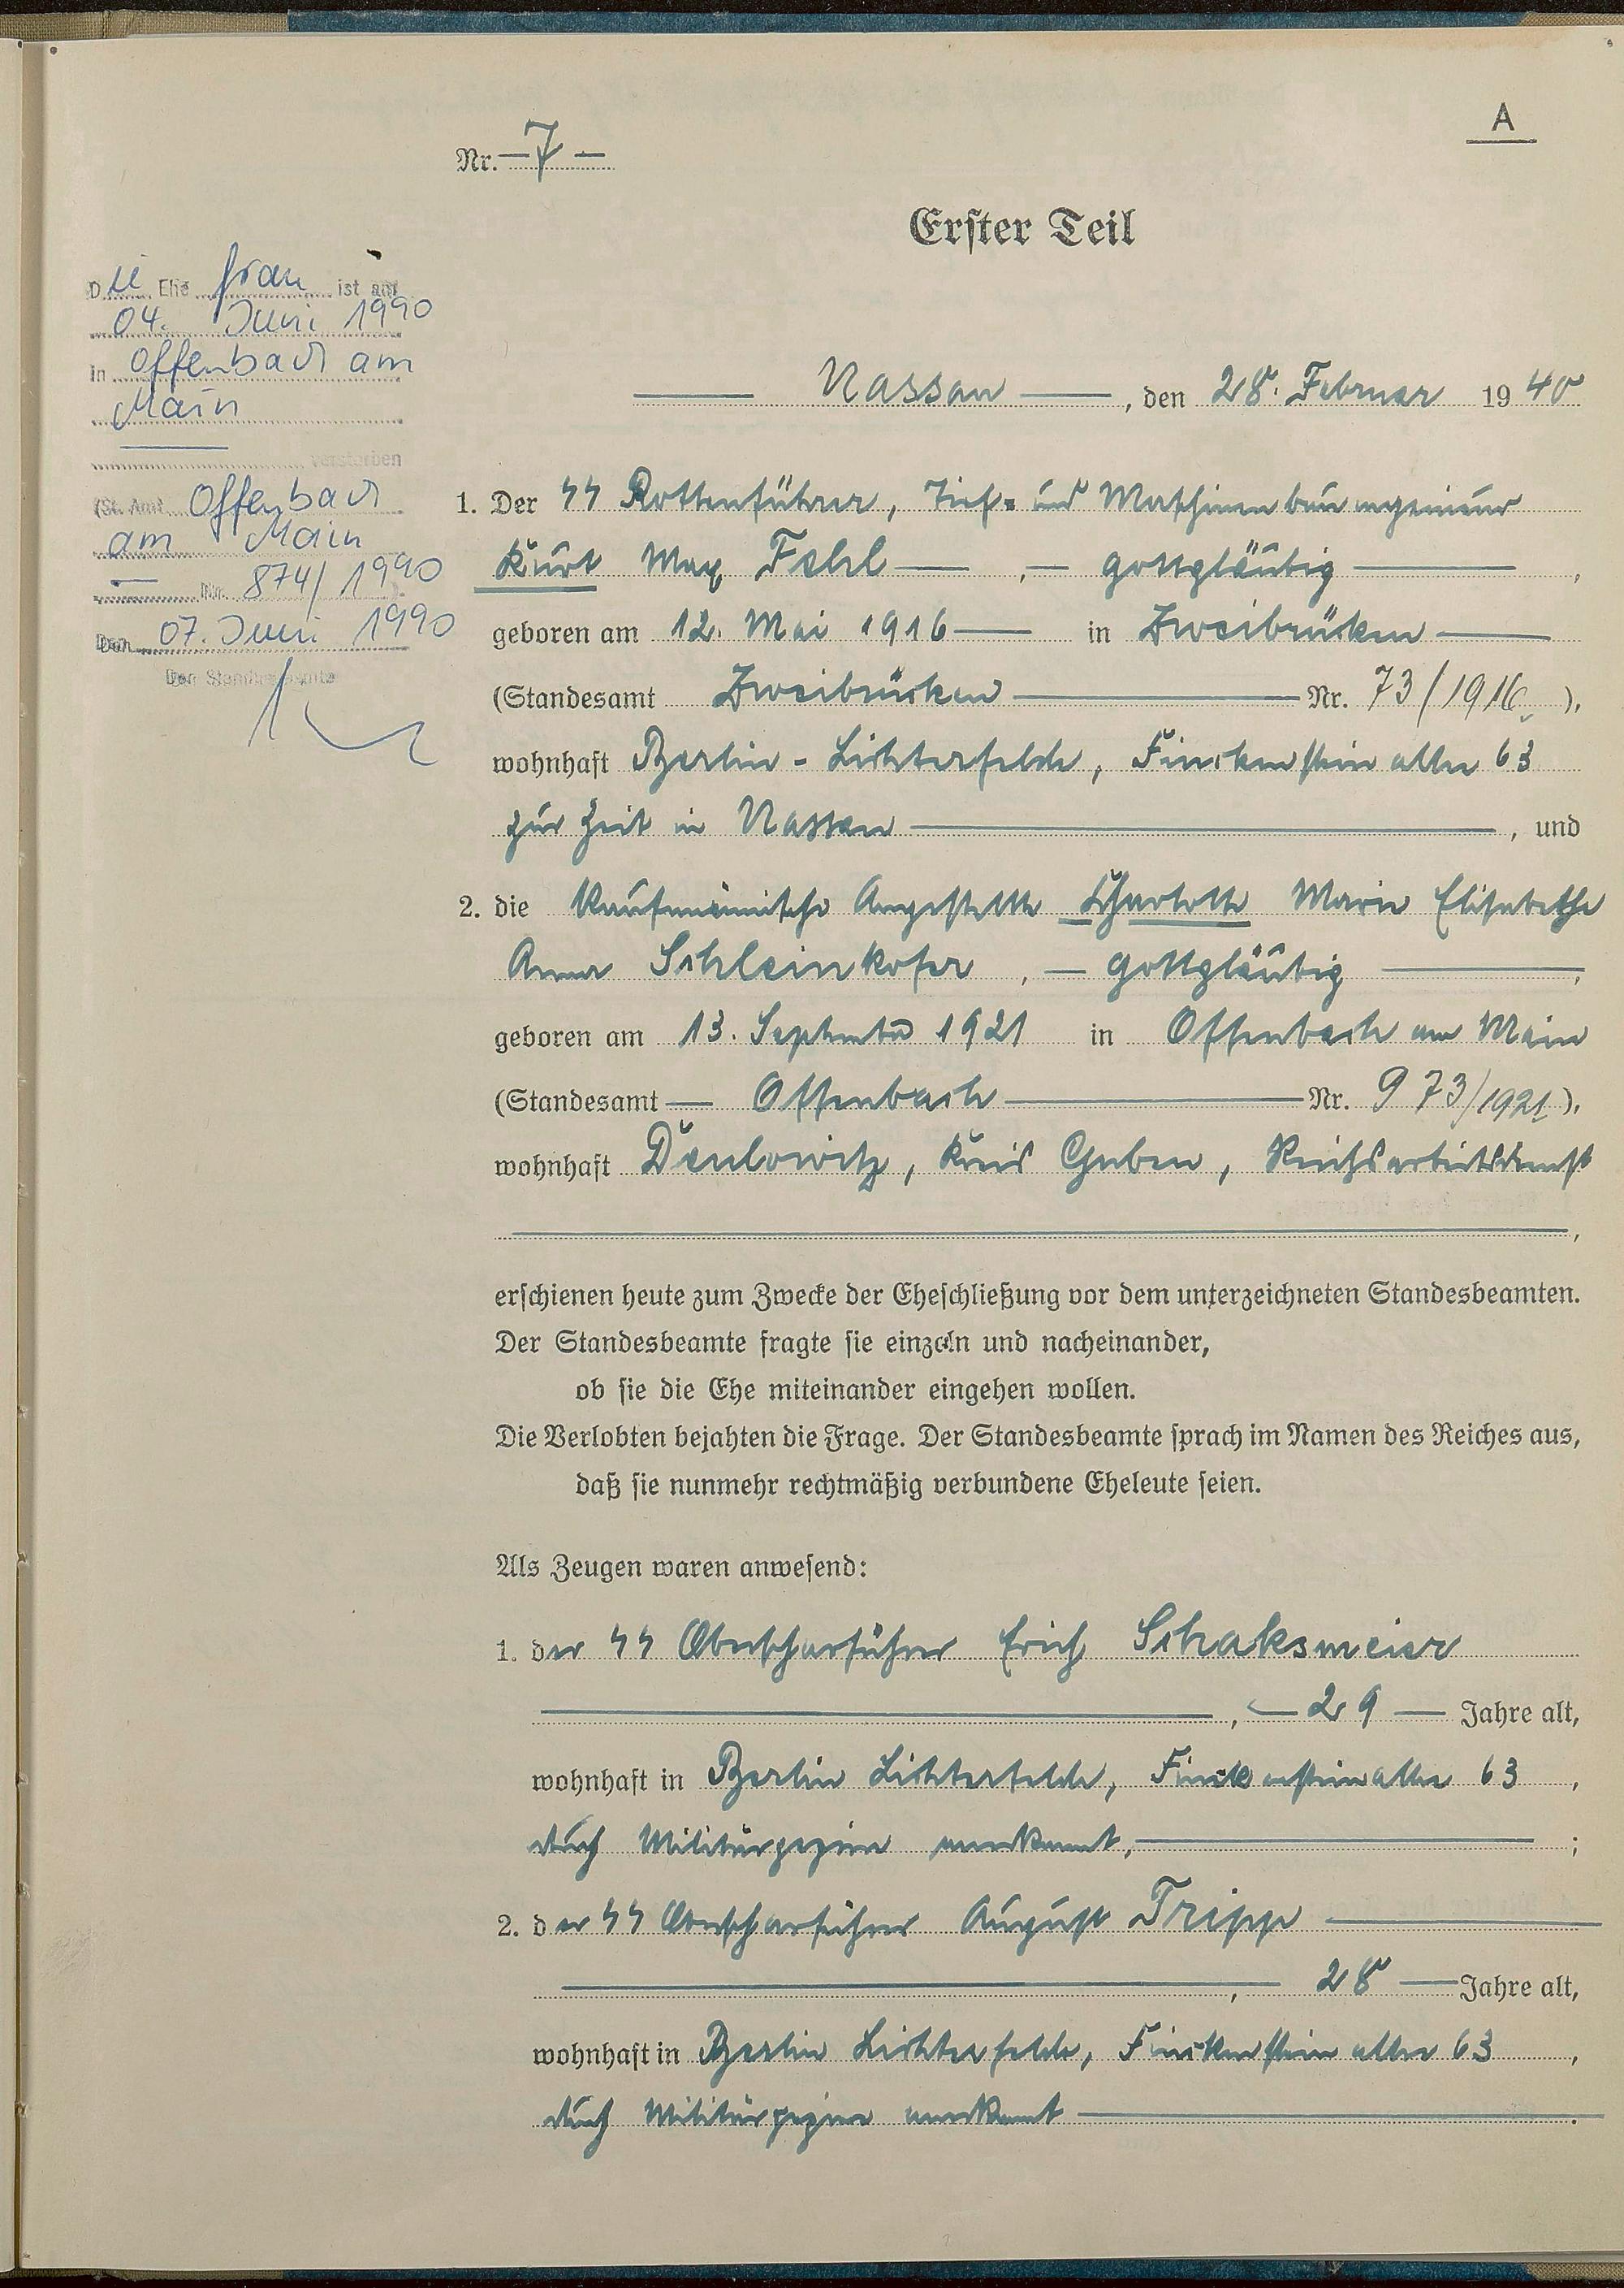 A
Nr. — 7 —
Erster Teil
Die Ehefrau ist am
04. Juni 1990
in Offenbach am
Main
verstorben
(St. Amt Offenbach
am Main
Nr. 874/1990
Den 07. Juni 1990
Der Standesbeamte
Nassau, den 28. Februar 1940
1. Der SS Rottenführer, Tief- und Maschinenbauingenieur
Kurt Max Fehl —, — gottgläubig —,
geboren am 12. Mai 1916 — in Zweibrücken —
(Standesamt Zweibrücken — Nr. 73/1916),
wohnhaft Berlin-Lichterfelde, Finckensteinallee 63
zur Zeit in Nassau —, und
2. die kaufmännische Angestellte Charlotte Marie Elisabethe
Anna Schleinkofer, — gottgläubig —,
geboren am 13. September 1921 in Offenbach am Main
(Standesamt — Offenbach — Nr. 973/1921),
wohnhaft Deulowitz, Kreis Guben, Reichsarbeitsdienst
erschienen heute zum Zwecke der Eheschließung vor dem unterzeichneten Standesbeamten.
Der Standesbeamte fragte sie einzeln und nacheinander,
ob sie die Ehe miteinander eingehen wollen.
Die Verlobten bejahten die Frage. Der Standesbeamte sprach im Namen des Reiches aus,
daß sie nunmehr rechtmäßig verbundene Eheleute seien.
Als Zeugen waren anwesend:
1. der SS Oberscharführer Erich Schaksmeier
—, — 29 — Jahre alt,
wohnhaft in Berlin Lichterfelde, Finckensteinallee 63,
durch Militärpapiere anerkannt, —;
2. der SS Oberscharführer August Tripp —
—, 28 — Jahre alt,
wohnhaft in Berlin Lichterfelde, Finckensteinallee 63,
durch Militärpapiere anerkannt —.